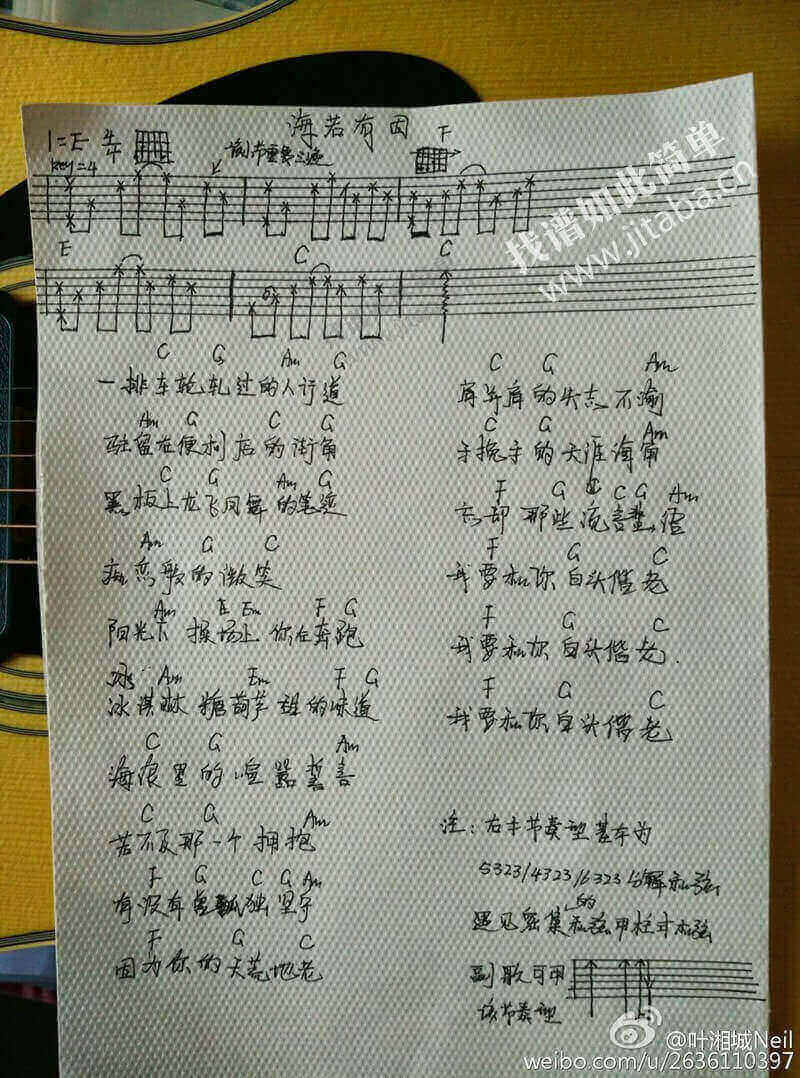 海若有因
1=E 4/4
key=4
该小节重复三遍
F
E C C
C G Am G
一排车轮轧过的人行道
Am G C G
驻留在便利店的街角
C G Am G
黑板上龙飞凤舞的笔迹
Am G C
痴恋般的微笑
Am E Em F G
阳光下 操场上 你在奔跑
Am Em F G
冰淇淋 糖葫芦 甜的味道
C G Am
海浪里的喧嚣誓言
C G Am
若不及那一个拥抱
F G C G Am
有没有 孤独坚守
F G C
因为你的天荒地老
C G Am
肩并肩的矢志不渝
C G Am
手挽手的天涯海角
F G C C G Am
忘却那些流言蜚语
F G C
我要和你白头偕老
F G C
我要和你白头偕老.
F G C
我要和你白头偕老
注:右手节奏型基本为
5323/4323/6323分解和弦
遇见密集的和弦用柱式和弦
副歌可用
该节奏型
找谱如此简单
www.jitaba.cn
@叶湘城Neil
weibo.com/u/2636110397